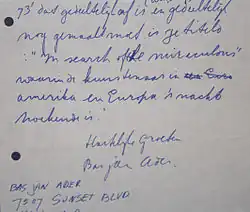 73' dat gedeeltelijk af is en gedeeltelijk
nog gemaakt moet is getiteld
: "In search of the miraculous"
waarin de kunstenaar in
amerika en Europa 's nachts
zoekende is.
Hartelijke Groeten
Bas jan Ader.
BAS JAN ADER
7507 SUNSET BLVD